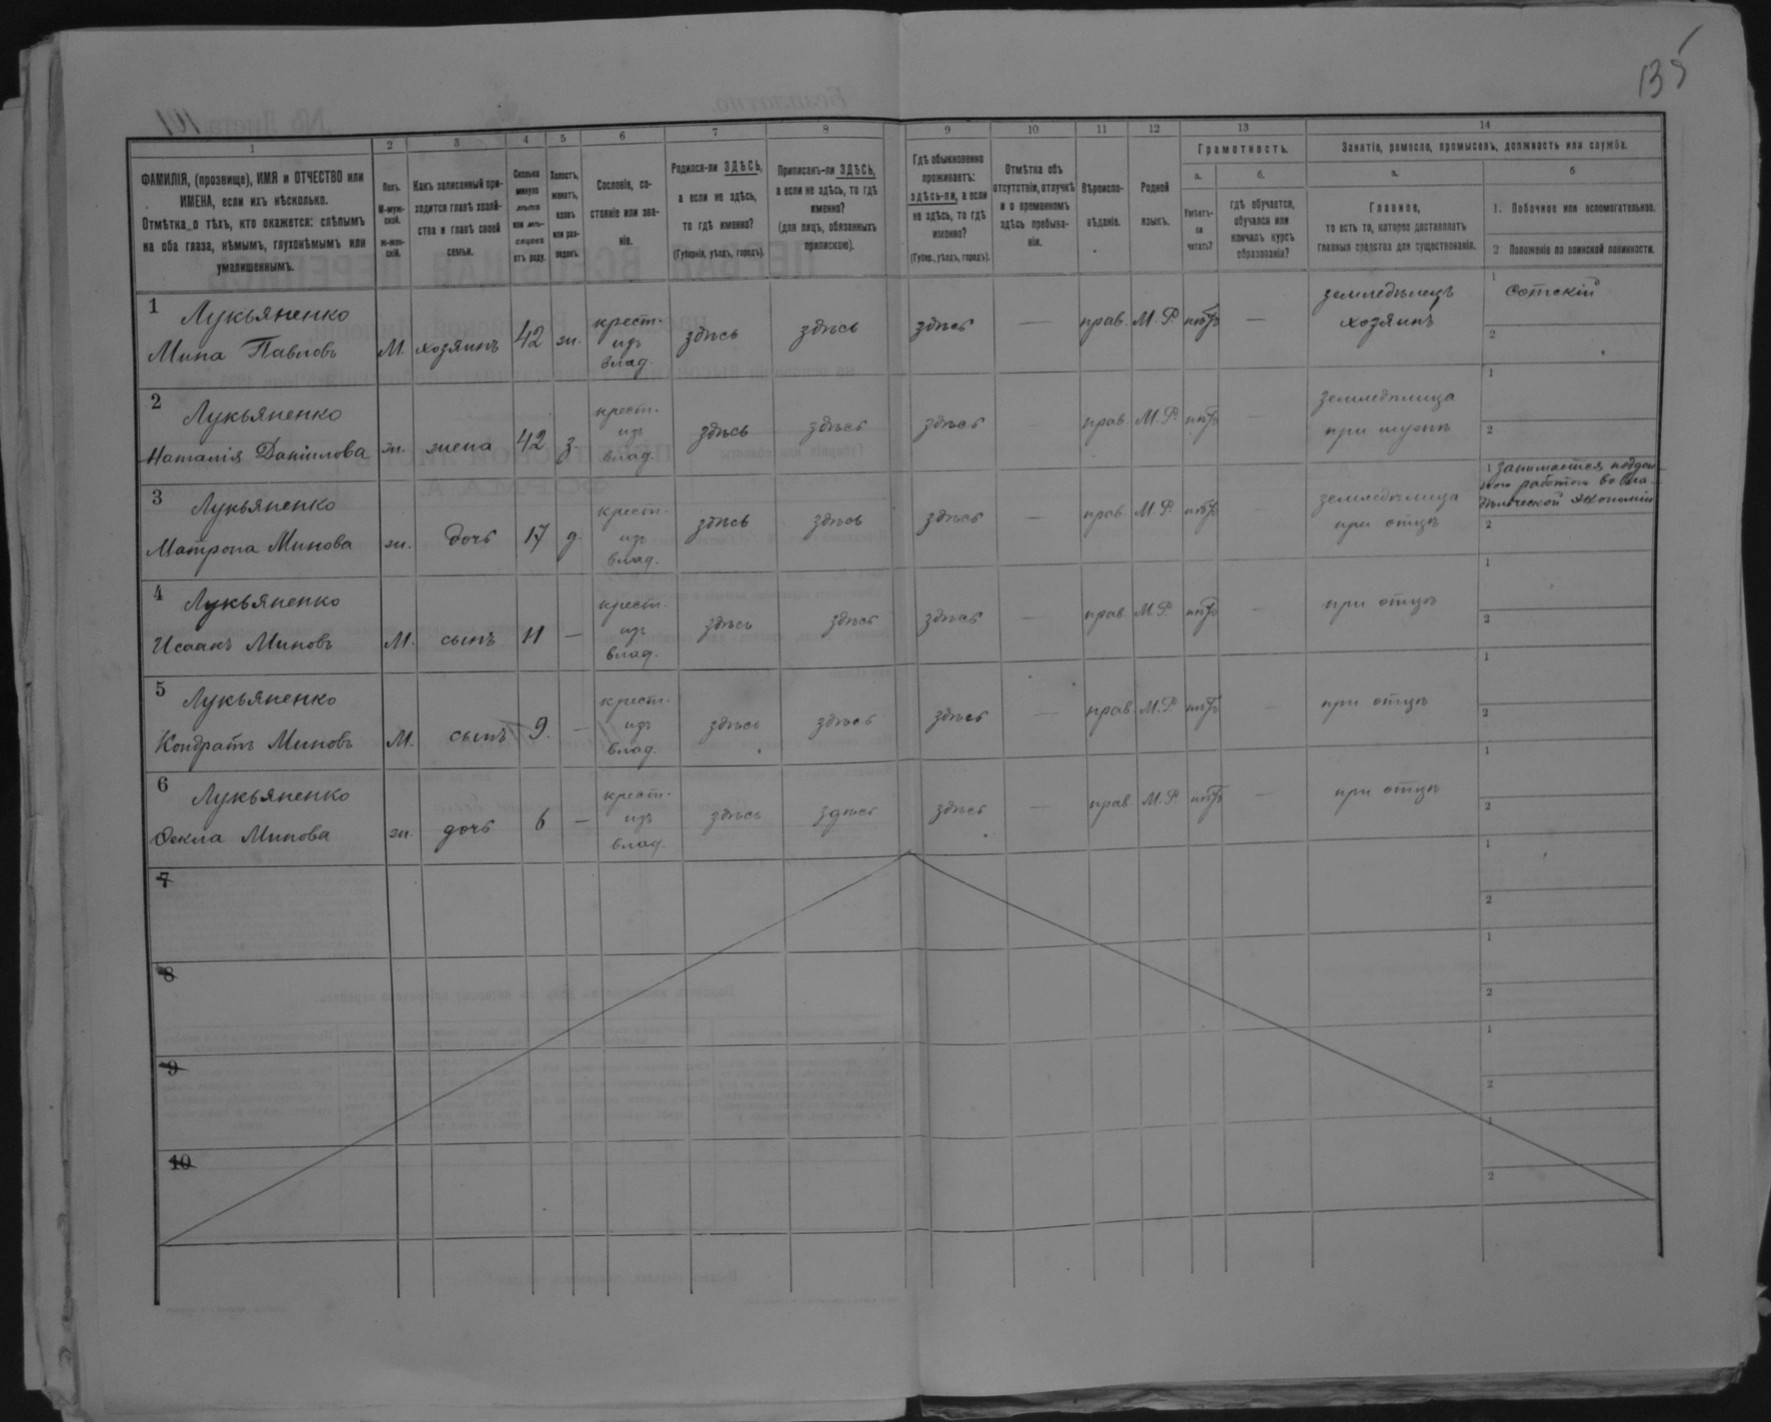 135
1
2
3
4
5
6
7
8
9
10
11
12
13
14
ФАМИЛІЯ, (прозвище), ИМЯ и ОТЧЕСТВО или
ИМЕНА, если ихъ нѣсколько.
Отмѣтка о тѣхъ, кто окажется: слѣпымъ
на оба глаза, нѣмымъ, глухонѣмымъ или
умалишеннымъ.
Полъ.
М-муж-
ской.
ж-жен-
скій.
Какъ записанный при-
ходится главѣ хозяй-
ства и главѣ своей
семьи.
Сколько
минуло
лѣтъ
или мѣ-
сяцевъ
отъ роду.
Холостъ,
женатъ,
вдовъ
или раз-
веденъ.
Сословіе, со-
стояніе или зва-
ніе.
Родился-ли ЗДѢСЬ,
а если не здѣсь,
то гдѣ именно?
(Губернія, уѣздъ, городъ).
Приписанъ-ли ЗДѢСЬ,
а если не здѣсь, то гдѣ
именно?
(для лицъ, обязанныхъ
припискою).
Гдѣ обыкновенно
проживаетъ:
здѣсь-ли, а если
не здѣсь, то гдѣ
именно?
(Губер., уѣздъ, городъ).
Отмѣтка объ
отсутствіи, отлучкѣ
и о временномъ
здѣсь пребыва-
ніи.
Вѣроиспо-
вѣданіе.
Родной
языкъ.
Грамотность.
а.
Умѣетъ-
ли
читать?
б.
гдѣ обучается,
обучался или
кончилъ курсъ
образованія?
Занятіе, ремесло, промыселъ, должность или служба.
а.
Главное,
то есть то, которое доставляетъ
главныя средства для существованія.
б
1. Побочное или вспомогательное.
2 Положеніе по воинской повинности.
1
Лукьяненко
Мина Павловъ
М.
хозяинъ
42
ж.
крест.
изъ
влад.
здѣсь
здѣсь
здѣсь
—
прав.
М. Р.
нѣтъ
—
земледѣлецъ
хозяинъ
1
сотскій
2
2
Лукьяненко
Наталія Даніилова
ж.
жена
42
з.
крест.
изъ
влад.
здѣсь
здѣсь
здѣсь
прав.
М. Р.
нѣтъ
—
земледѣлица
при мужѣ
1
2
3
Лукьяненко
Матрона Минова
ж.
дочь
17
д.
крест.
изъ
влад.
здѣсь
здѣсь
здѣсь
—
прав.
М. Р.
нѣтъ
—
земледѣлица
при отцѣ
1 занимается поден
ною работою во вла
дѣльческой экономіи
2
4
Лукьяненко
Исаакъ Миновъ
М.
сынъ
11
—
крест.
изъ
влад.
здѣсь
здѣсь
здѣсь
—
прав.
М. Р.
нѣтъ
—
при отцѣ
1
2
5
Лукьяненко
Кондратъ Миновъ
М.
сынъ
9.
—
крест.
изъ
влад.
здѣсь
здѣсь
здѣсь
—
прав.
М. Р.
нѣтъ
—
при отцѣ
1
2
6
Лукьяненко
Фекла Минова
ж.
дочь
6
—
крест.
изъ
влад.
здѣсь
здѣсь
здѣсь
—
прав.
М. Р.
нѣтъ
—
при отцѣ
1
2
7
1
2
8
1
2
9
1
2
10
1
2